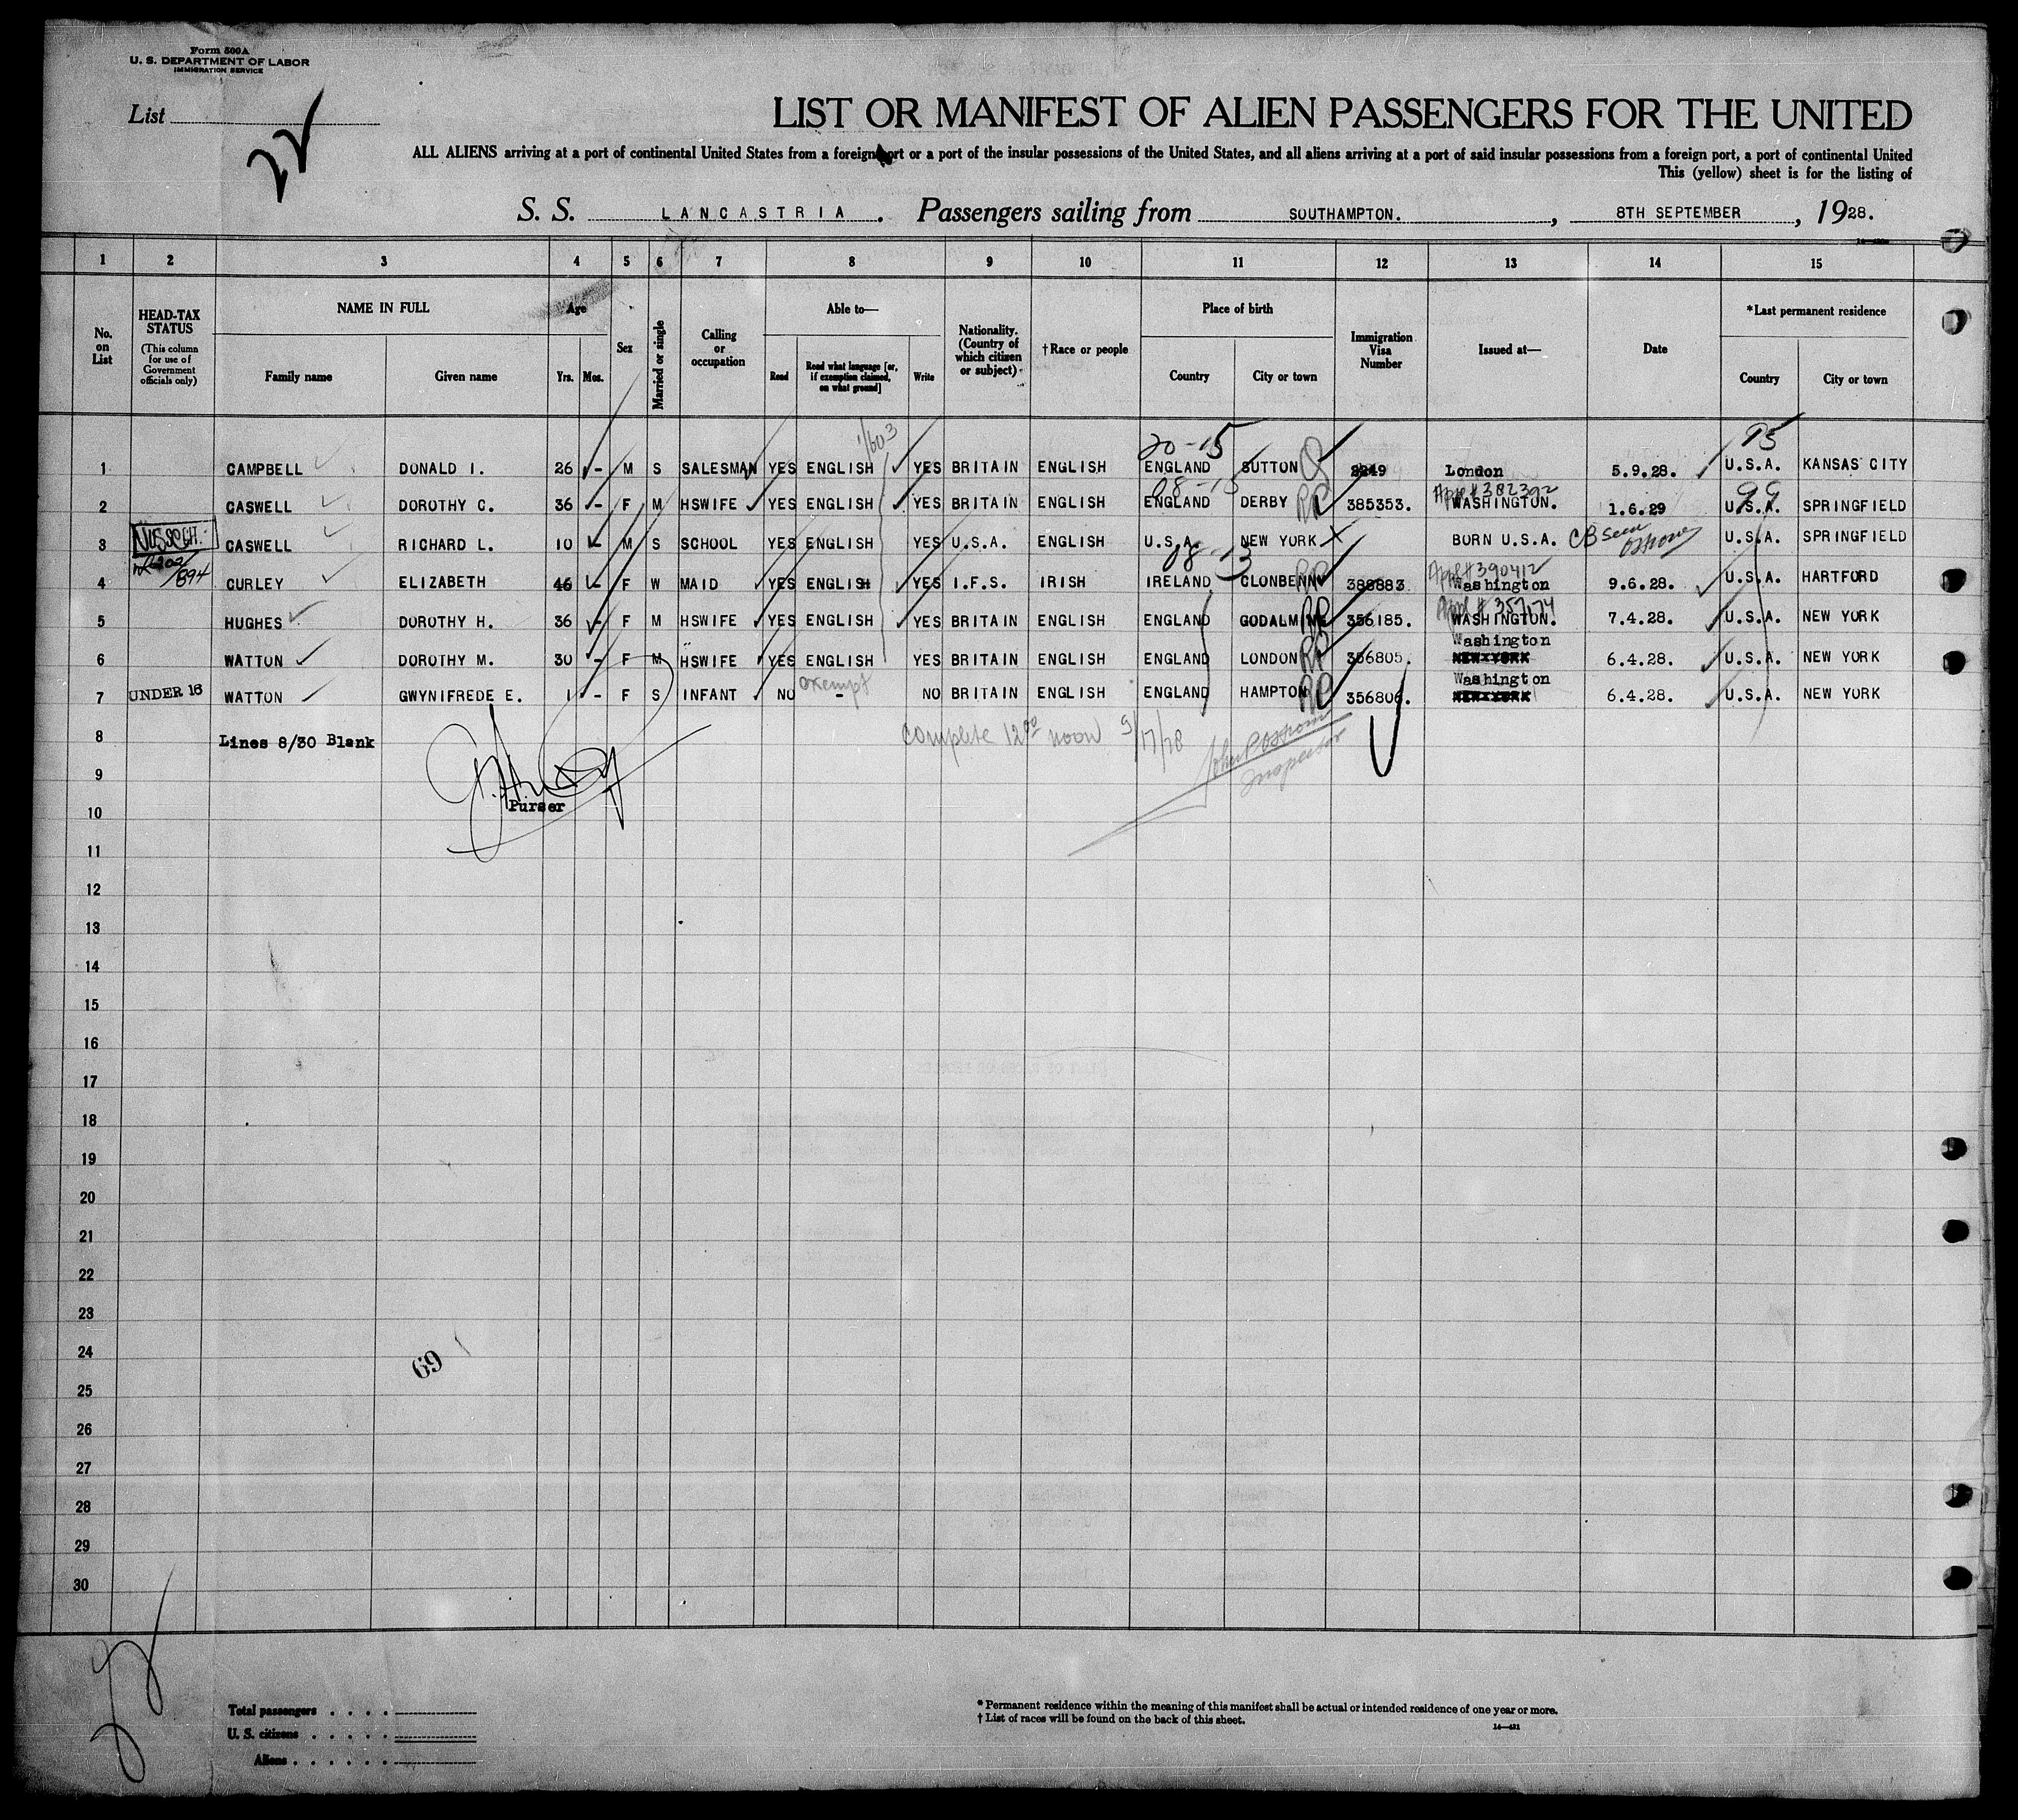 Form 500A
U. S. DEPARTMENT OF LABOR
IMMIGRATION SERVICE
List
22
LIST OR MANIFEST OF ALIEN PASSENGERS FOR THE UNITED
ALL ALIENS arriving at a port of continental United States from a foreign port or a port of the insular possessions of the United States, and all aliens arriving at a port of said insular possessions from a foreign port, a port of continental United
This (yellow) sheet is for the listing of
S. S. LANCASTRIA. Passengers sailing from SOUTHAMPTON., 8TH SEPTEMBER, 1928.
1 2 3 4 5 6 7 8 9 10 11 12 13 14 15
No. on List
HEAD-TAX STATUS (This column for use of Government officials only)
NAME IN FULL
Family name Given name
Age
Yrs. Mos.
Sex
Married or single
Calling or occupation
Able to—
Read
Read what language [or, if exemption claimed, on what ground]
Write
Nationality. (Country of which citizen or subject)
†Race or people
Place of birth
Country City or town
Immigration Visa Number
Issued at—
Date
*Last permanent residence
Country City or town
1/603 20-15 95
1 CAMPBELL DONALD I. 26 - M S SALESMAN YES ENGLISH YES BRITAIN ENGLISH ENGLAND SUTTON 2249 London 5.9.28. U.S.A. KANSAS CITY
08-15 Appl # 382392 99
2 CASWELL DOROTHY C. 36 - F M HSWIFE YES ENGLISH YES BRITAIN ENGLISH ENGLAND DERBY RP 385353. WASHINGTON. 1.6.29 U.S.A. SPRINGFIELD
3 CASWELL RICHARD L. 10 - M S SCHOOL YES ENGLISH YES U.S.A. ENGLISH U.S.A. NEW YORK X BORN U.S.A. CB seen U.S.A. SPRINGFIELD
08-13 Appl # 390412
4 /894 CURLEY ELIZABETH 46 - F W MAID YES ENGLISH YES I.F.S. IRISH IRELAND CLONBERN RP 388883. Washington 9.6.28. U.S.A. HARTFORD
Appl # 357174
5 HUGHES DOROTHY H. 36 - F M HSWIFE YES ENGLISH YES BRITAIN ENGLISH ENGLAND GODALMING RP 356185. WASHINGTON. 7.4.28. U.S.A. NEW YORK
Washington
6 WATTON DOROTHY M. 30 - F M HSWIFE YES ENGLISH YES BRITAIN ENGLISH ENGLAND LONDON RP 356805. NEW YORK 6.4.28. U.S.A. NEW YORK
exempt Washington
7 UNDER 16 WATTON GWYNIFREDE E. 1 - F S INFANT NO - NO BRITAIN ENGLISH ENGLAND HAMPTON RP 356806. NEW YORK 6.4.28. U.S.A. NEW YORK
8 Lines 8/30 Blank
Complete 12 00 noon 9/17/28
Inspector
9
Purser
10
11
12
13
14
15
16
17
18
19
20
21
22
23
24
69
25
26
27
28
29
30
Total passengers
U. S. citizens
Aliens
* Permanent residence within the meaning of this manifest shall be actual or intended residence of one year or more.
† List of races will be found on the back of this sheet.
14—421